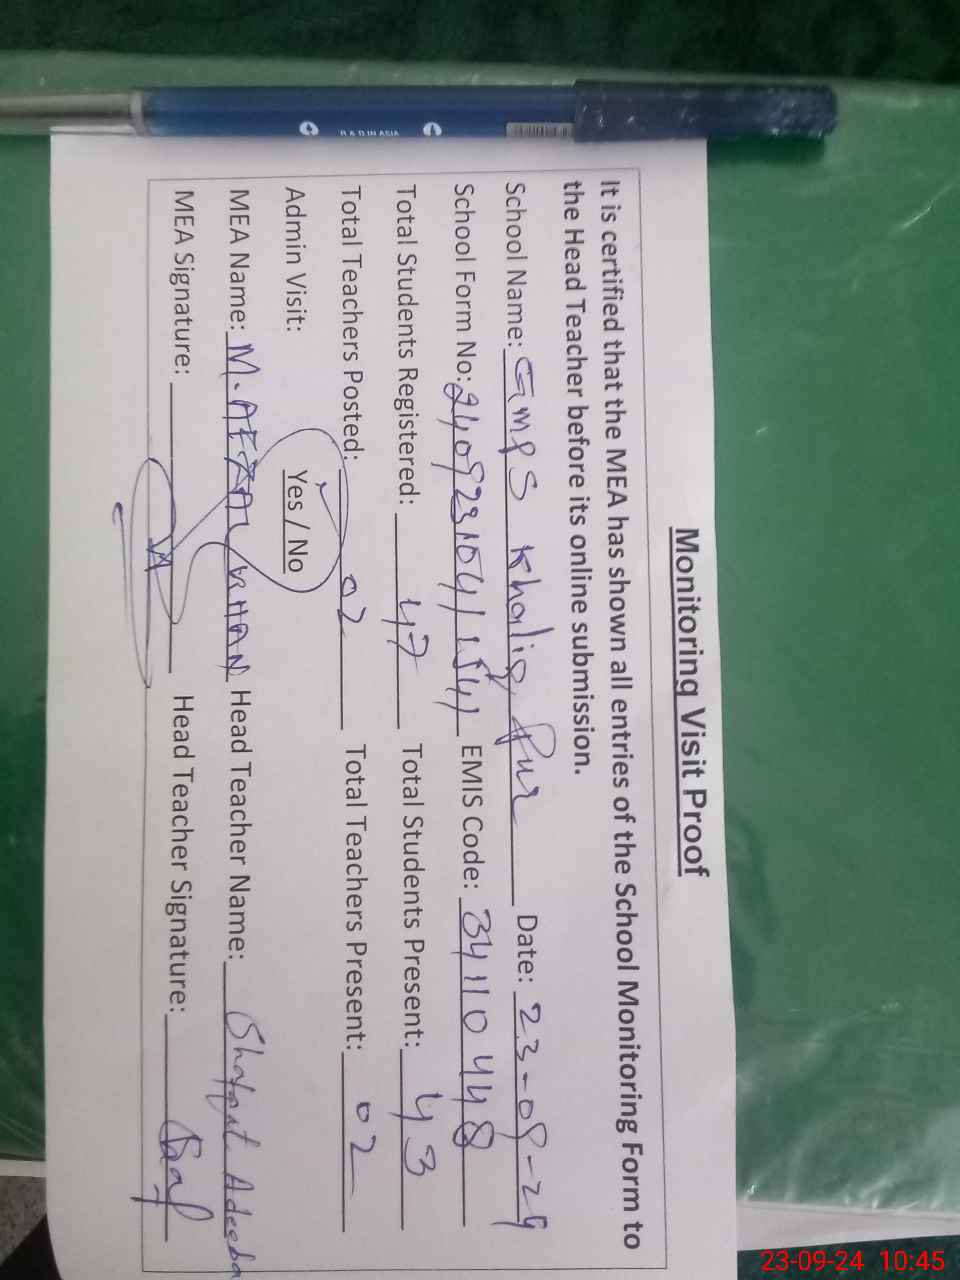 Monitoring Visit Proof
It is certified that the MEA has shown all entries of the School Monitoring Form to
the Head Teacher before its online submission.
School Name: GMPS Khaliq Pur Date: 23-09-24
School Form No: 24092310411541 EMIS Code: 34110448
Total Students Registered: 47 Total Students Present: 43
Total Teachers Posted: 02 Total Teachers Present: 02
Admin Visit: Yes / No
MEA Name: M. AFZAL KHAN Head Teacher Name: Shafqat Adeeba
MEA Signature: Head Teacher Signature:
23-09-24 10:45